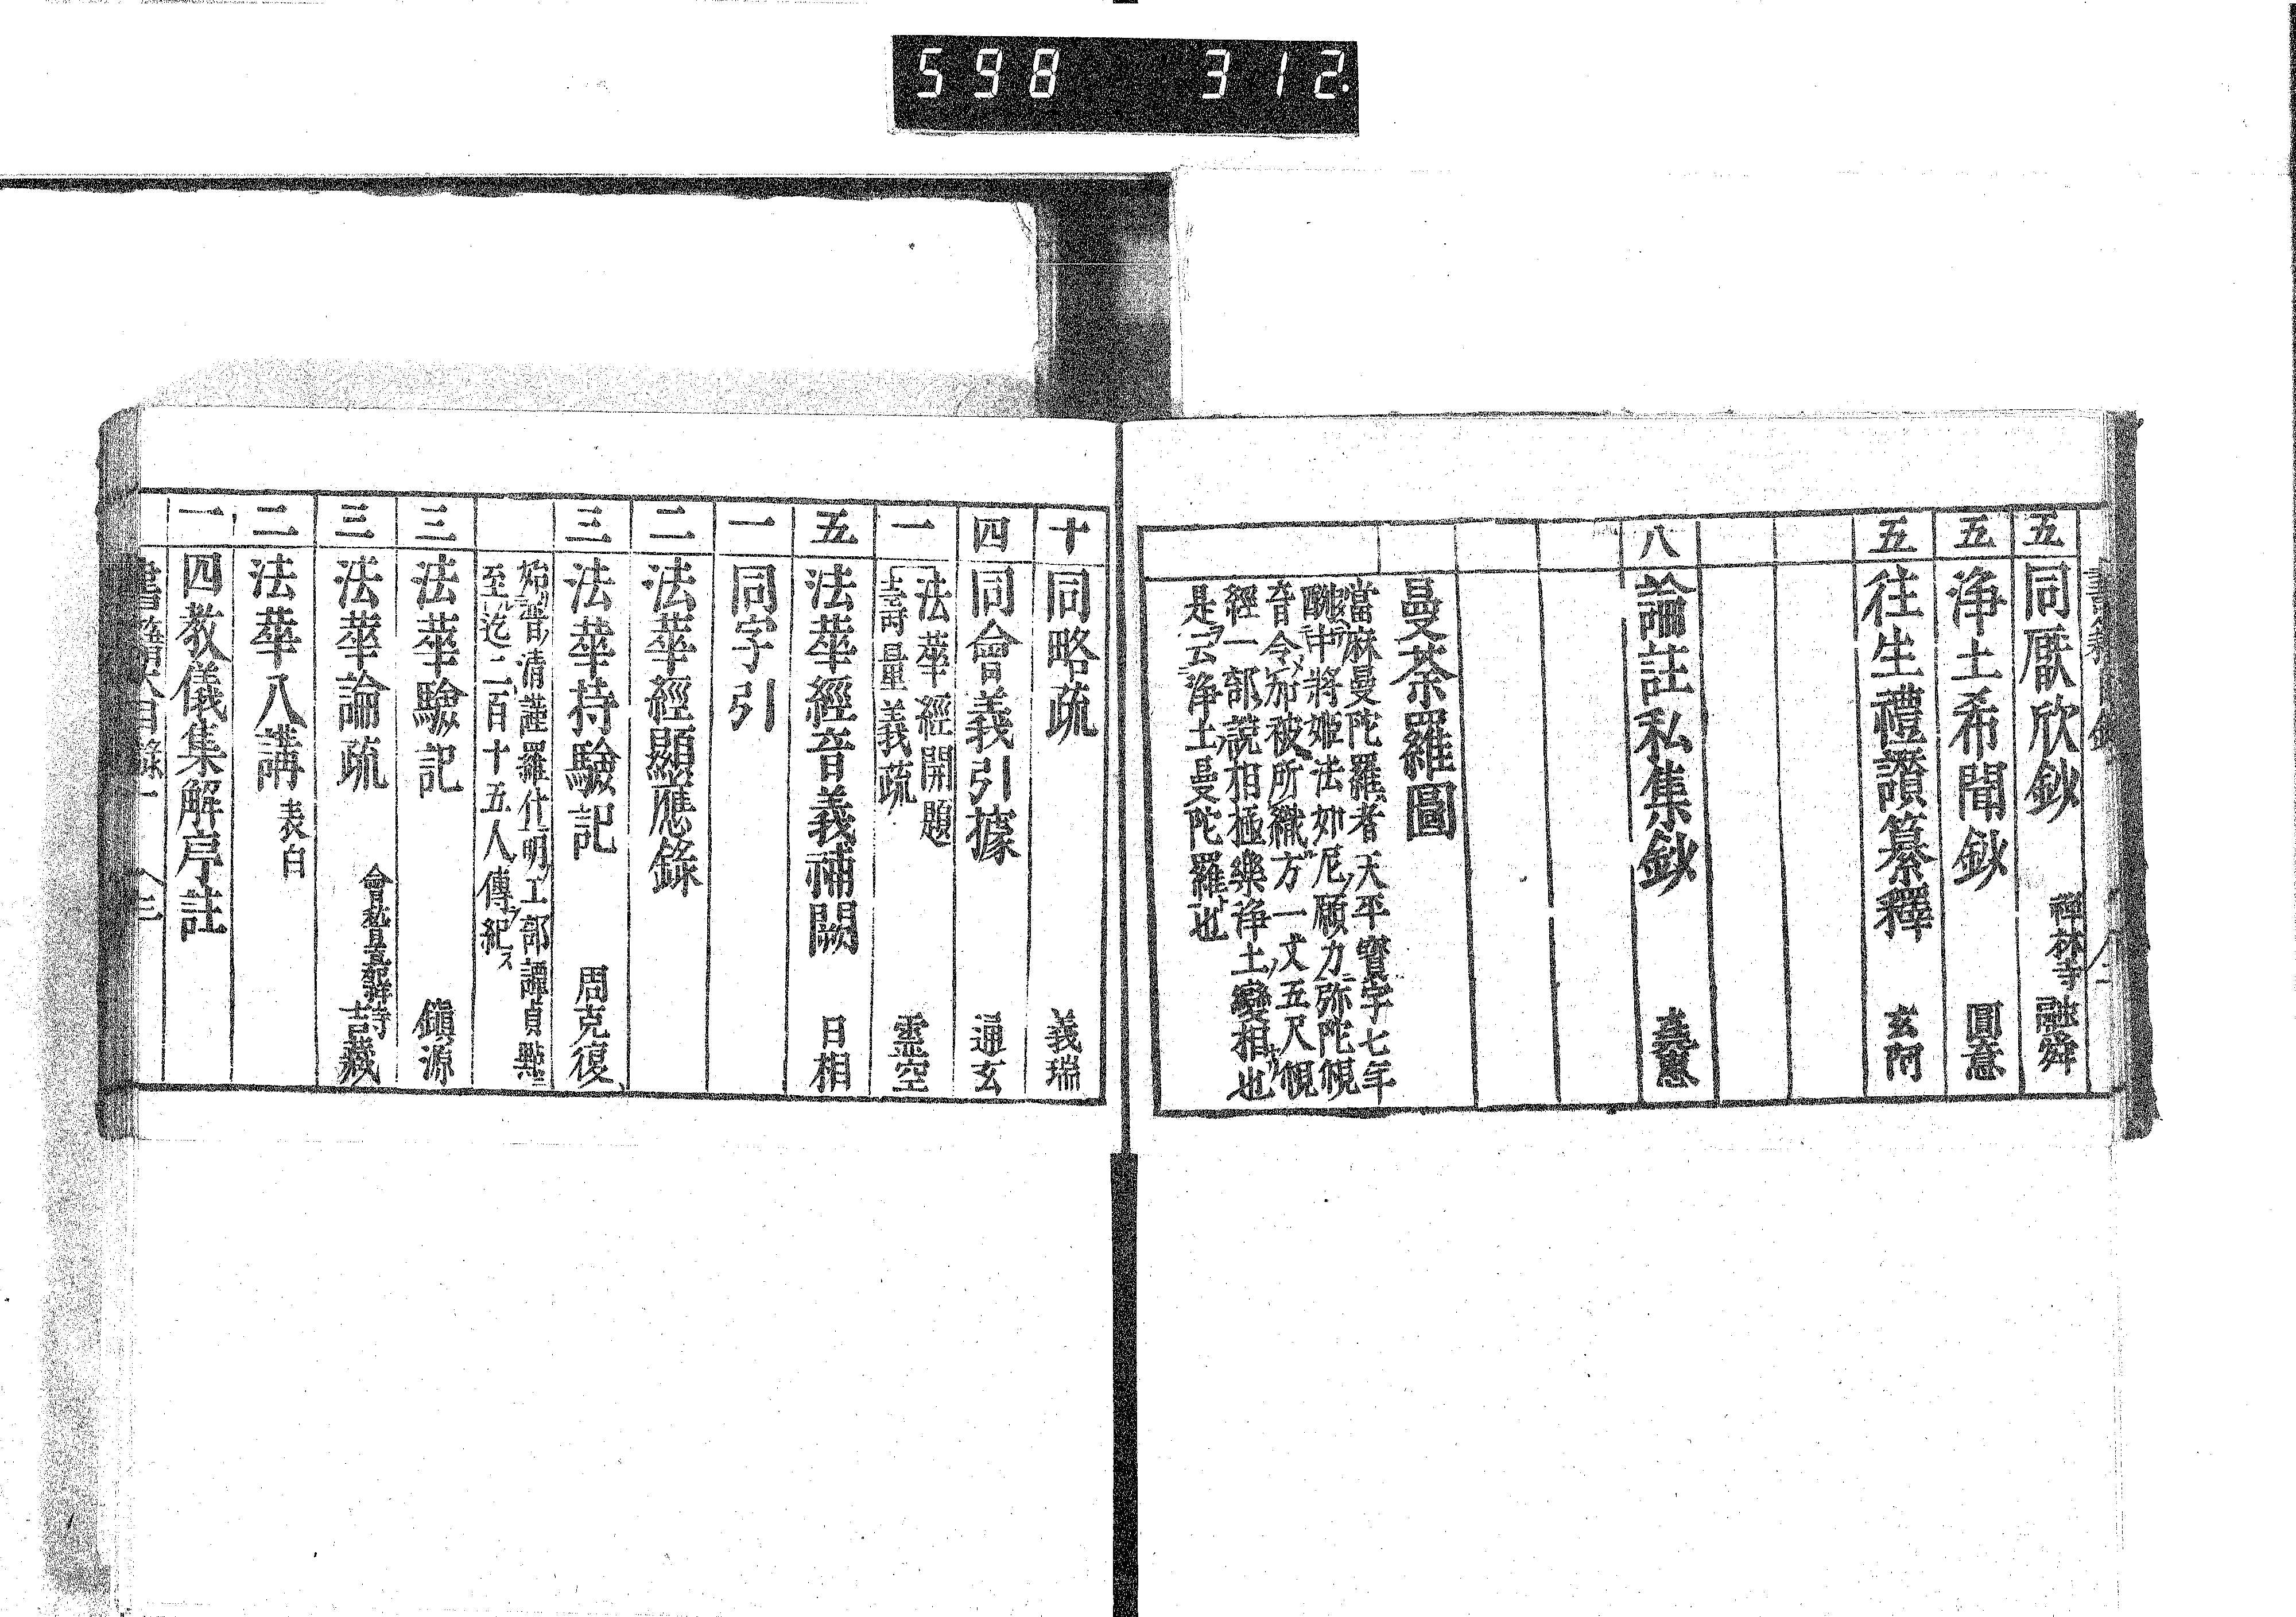 598 312.
五 同厭欣鈔 禅林寺 融舜
五 浄土希聞鈔 圓意
五 往生禮讃纂釋 玄阿
八 論註私集鈔
曼荼羅圖
當麻曼陀羅者天平寳字七年
中將姫法如尼願力弥陀觀
音令加被所織方一丈五尺觀
經一部説相極樂浄土變相也
是云浄土曼陀羅也
十 同略疏 義瑞
四 同會義引據 通玄
一 法華經開題
壽量義疏 霊空
五 法華經音義補闕 日相
一 同字引
二 法華經顯應錄
三 法華持驗記 周克復
始晋清謹羅仕明工部譚貞黙
至迄二百十五人傳紀ス
三 法華驗記 鎭源
三 法華論疏 吉藏
二 法華八講 表白
一 四教儀集解序註
書籍目錄一 八三